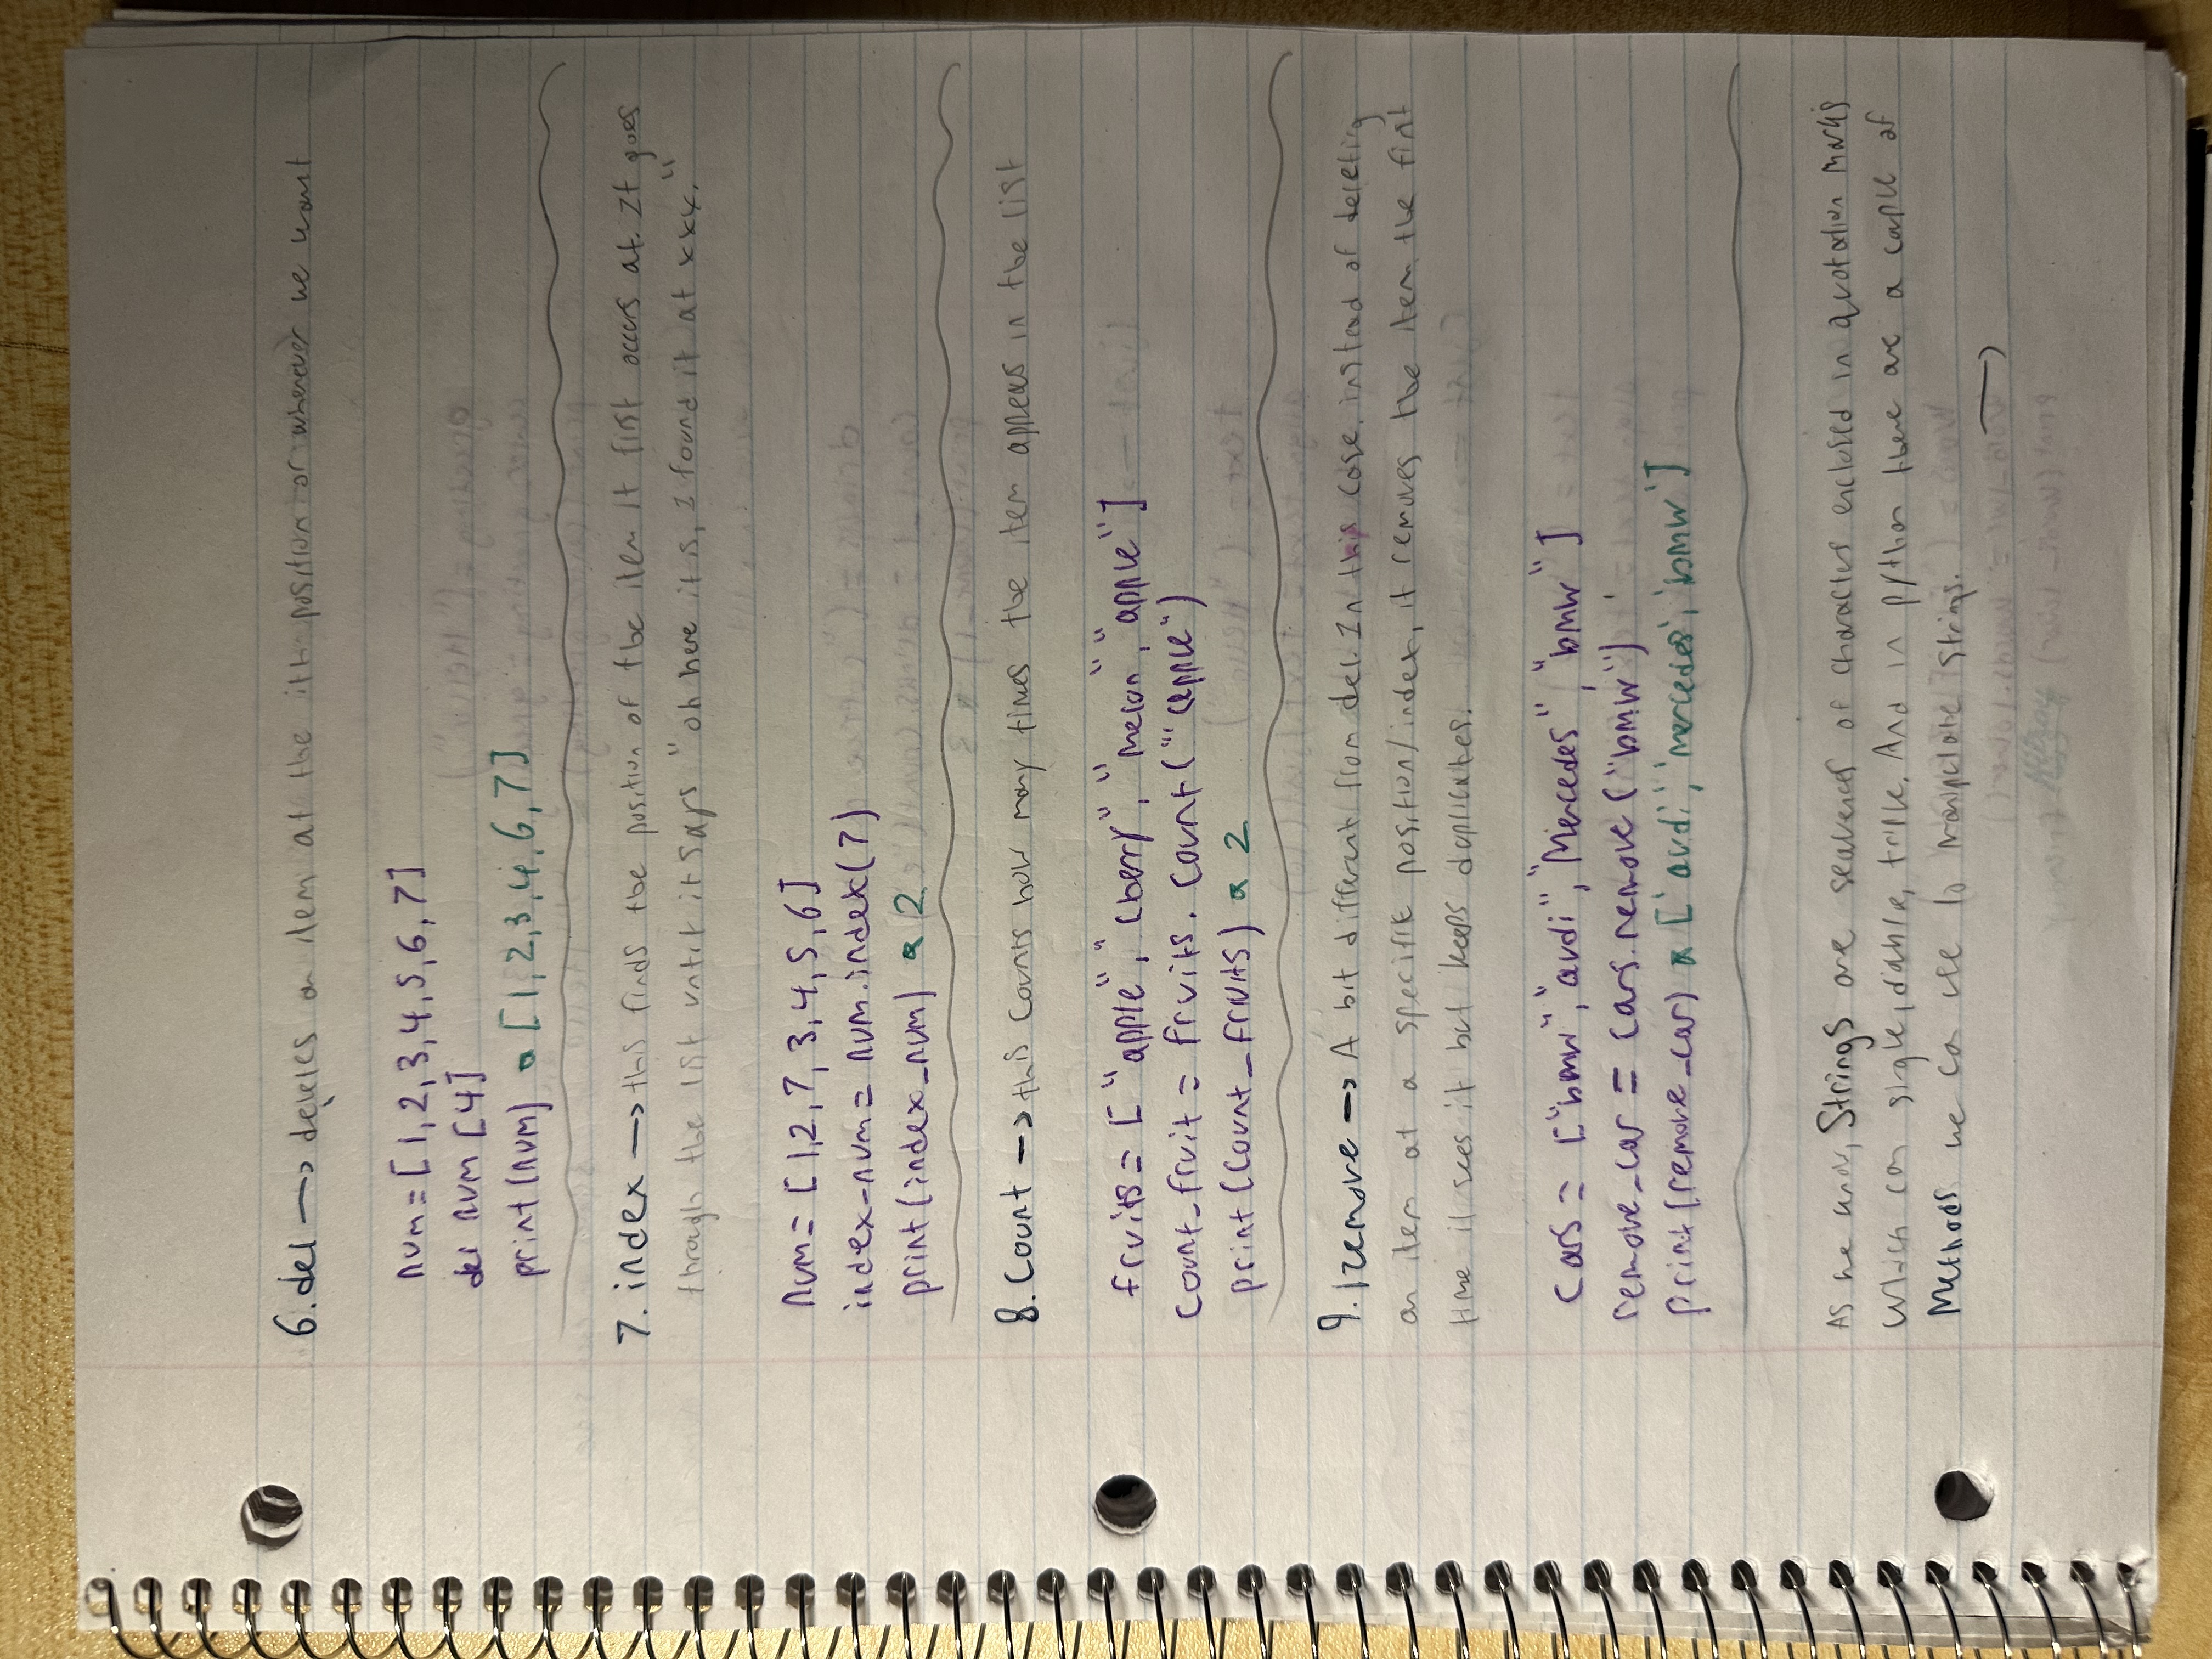 6. del → deletes an item at the ith position or wherever we want
num = [1, 2, 3, 4, 5, 6, 7]
del num [4]
print (num) * [1, 2, 3, 4, 6, 7]
7. index → this finds the position of the item it first occurs at. It goes
through the list until it says "oh here it is, I found it at xxx."
num = [1, 2, 7, 3, 4, 5, 6]
index_num = num.index(7)
print (index_num) * 2
8. Count → this counts how many times the item appears in the list
fruits = ["apple", "cherry", "melon", "apple"]
count_fruit = fruits. count ("apple")
print (count_fruits) * 2
9. remove → A bit different from del. In this case, instead of deleting
an item at a specific position/index, it removes the item the first
time it sees it but keeps duplicates.
Cars = ["bmw", "audi", "Mercedes", "bmw"]
remove_car = cars.remove ("bmw")
print (remove_car) * ['audi', 'mercedes', 'bmw']
As we know, Strings are sequences of characters enclosed in quotation marks
which can single, double, triple. And in python there are a couple of
Methods we can use to manipulate strings.
→